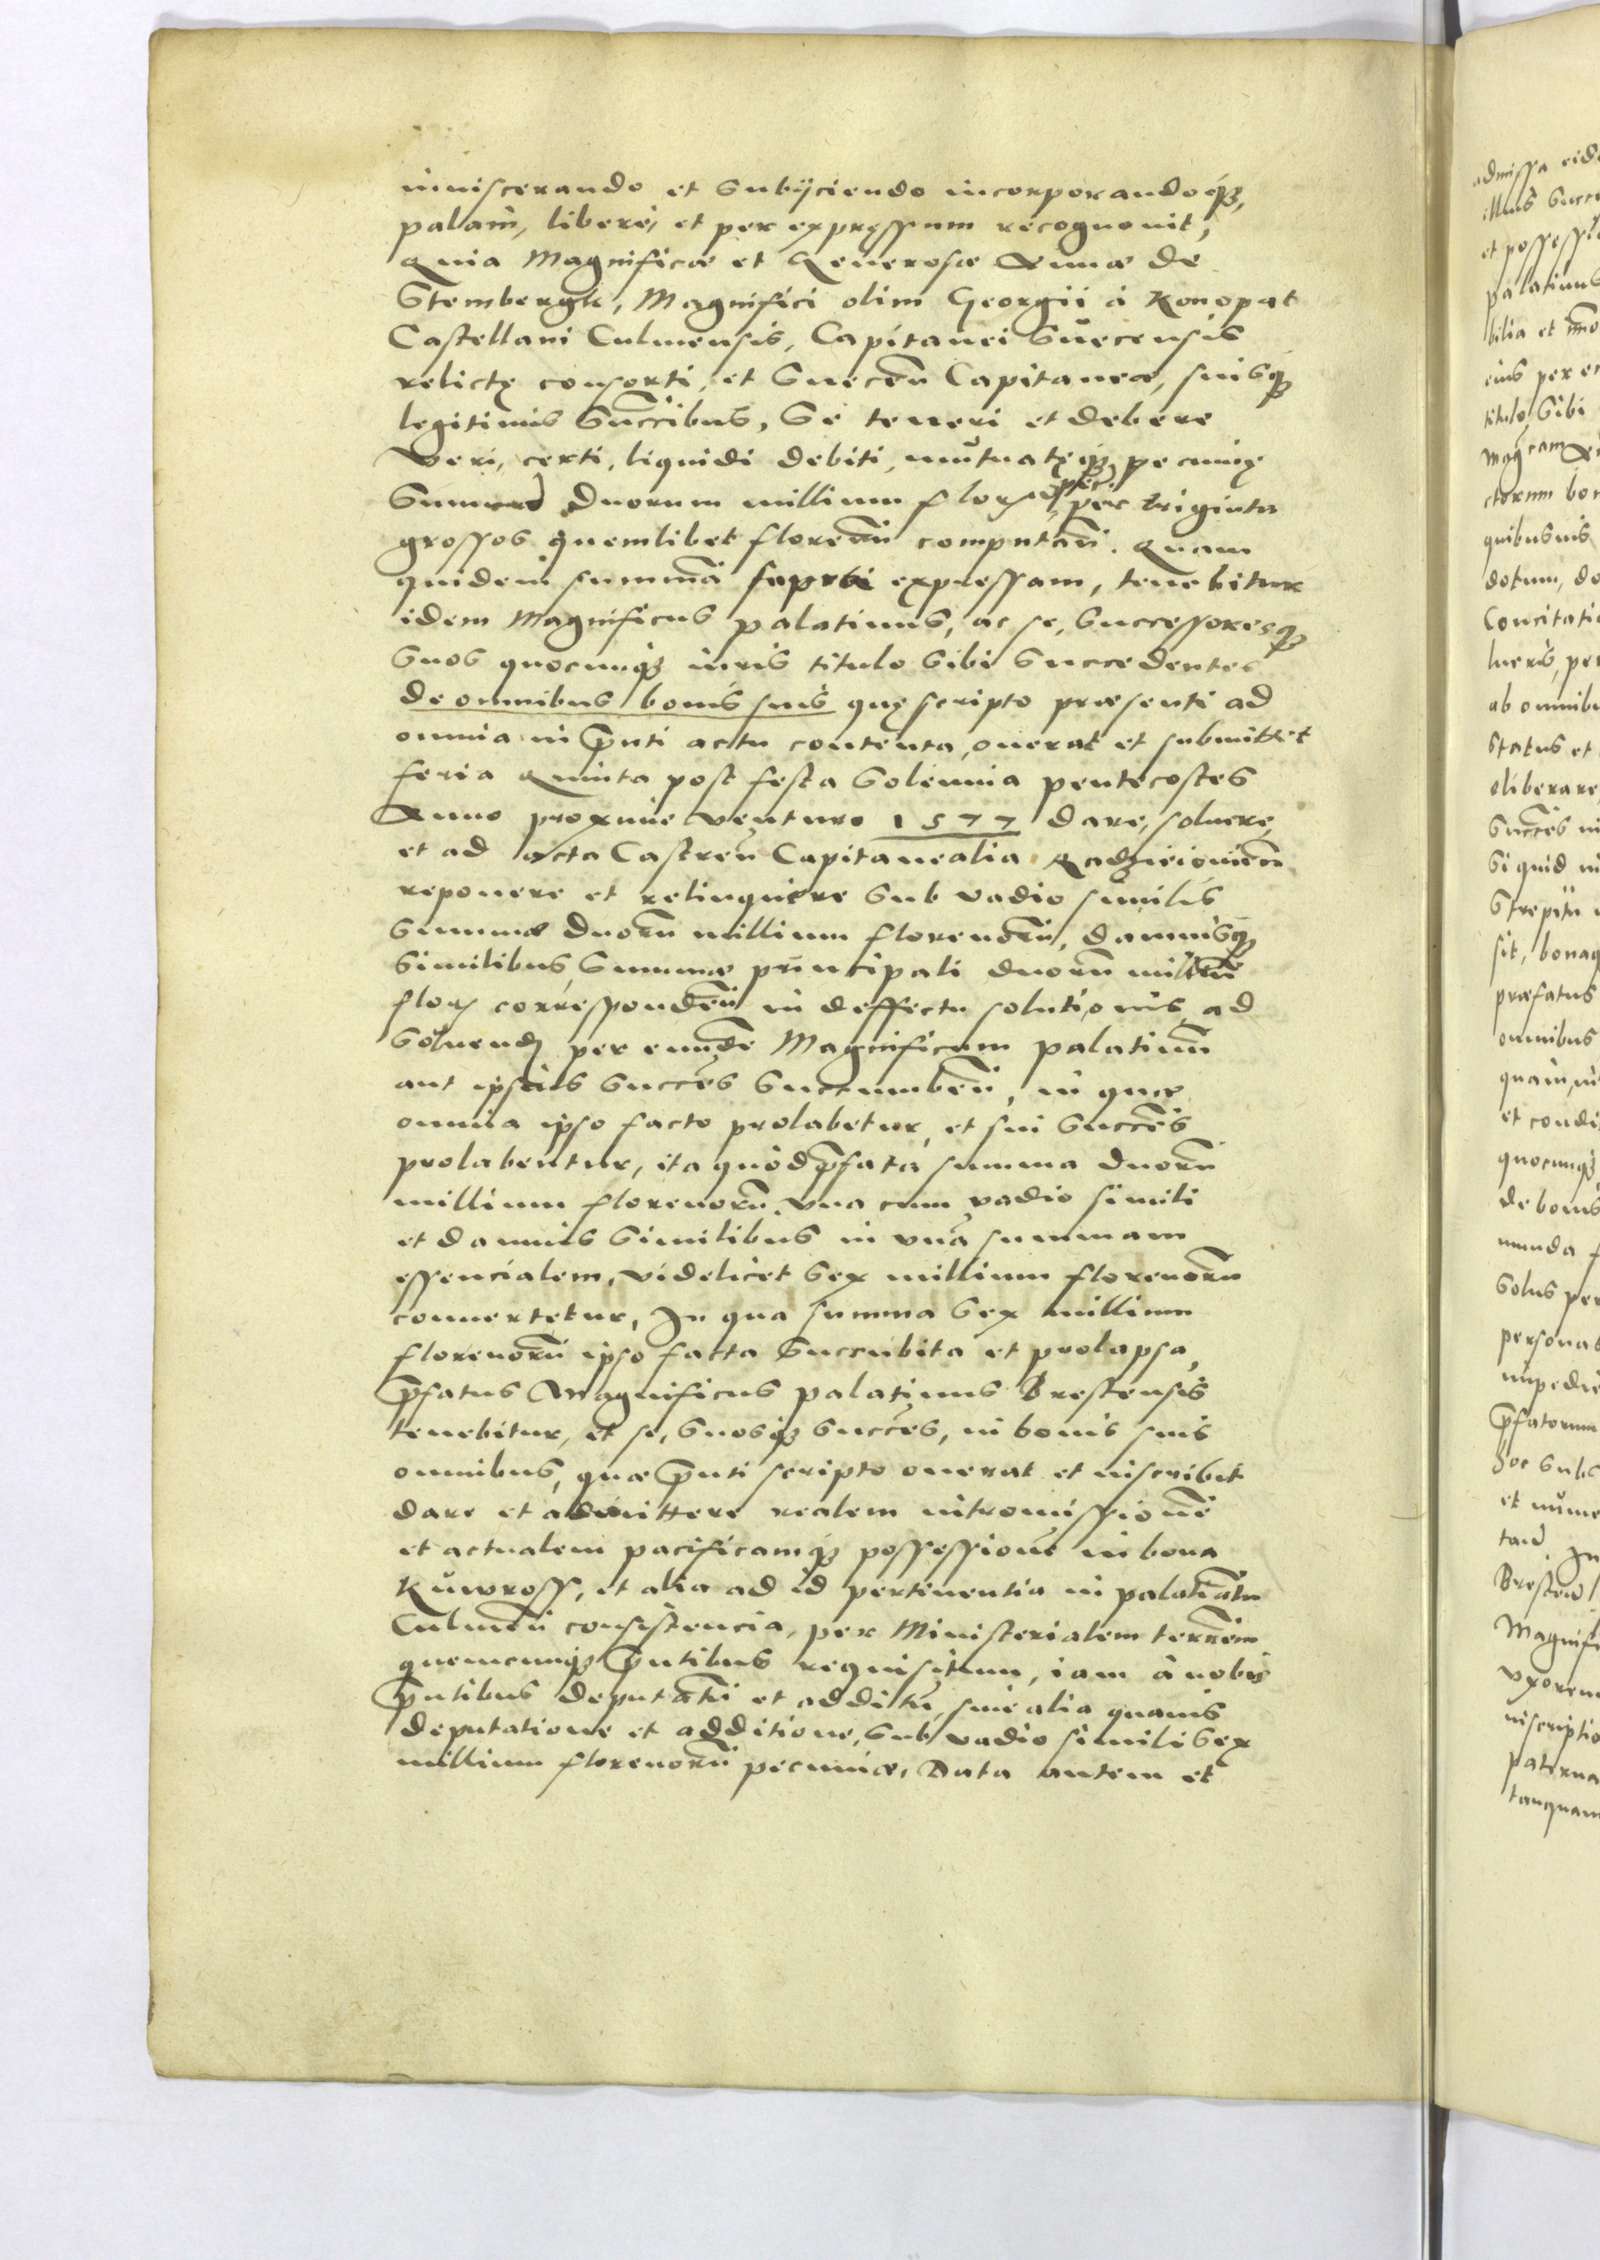 inuiscerando et subijciendo incorporandoq,
palam, liberè, et per expręssum recognouit,
Quia Magnificæ et Generosæ Annæ de
Stembergk, Magnifici olim Georgii à Konopat
Castellani Culmensis, Capitanei Suecensis
relictę consorti, et Suecen Capitaneæ, suisq
legitimis Succibus, Se teneri et debere
Veri, certi, liquidi debiti, mutuatęq pecunię
Summā duorum millium flor per triginta
grossos quemlibet florenū computan. Quam
quidem summā expressam, tenebitur
idem Magnificus palatinus, ac se, successoresq
Suos quocunq iuris titulo sibi succedentes
de omnibus bonis suis quę scripto præsenti ad
omnia in pnti actu contenta, onerat et submittet
feria Quinta post festa Solennia pentecostes
Anno proxime venturo 1577 dare, soluere,
et ad acta Castren Capitanealia Radzieiouien
reponere et relinquere sub vadio similis
Summæ duorū millium florenorū, damnisq
similibus, Summæ principali duorū milliū
flor corresponden in deffectu solutionis, ad
Soluend per eundē Magnificum palatinū
aut ipsius succes succumben, in quæ
omnia ipso facto prolabetur, et sui succes
prolabentur, ita quòd pfata summa duorū
millium florenorū vna cum vadio simili
et damnis similibus in vnā summam
essencialem, videlicet sex millium florenorū
conuertetur, In qua summa sex millium
florenorū ipso facta succubita et prolapsa,
pfatus Magnificus palatinus Brestensis
tenebitur, et se, suosq succes, in bonis suis
omnibus, quæ pnti scripto onerat et inscribit
dare et admittere realem intromissionē
et actualem pacificamq possessionē in bona
Kuwross, et alia ad id pertinentia in palatinatu
Culmen consistencia, per Ministerialem terrem
quemcunq pntibus requisitum, iam à nobis
pntibus deputatū et additū, sine alia quauis
deputatione et additione, sub vadio simili sex
millium florenorū pecuniæ, Data autem et
admissa eid
illius Succ
et possess
palatinus
bilia et
eius per
titulo sibi
Mag
ctorum bon
quibusuis
dotum, do
Concitatio
lueris, per
ab omnibu
status et
oliberare
succes in
Si quid in
Strepitu
sit, bonaq
præfatus
omnibus
quam, in
et condi
quocunq
de bonis
munda
solus per
personas
impedi
pfatorum
hoc sub
et nume
tand In
Bresten
Magnifi
vxorem
inscriptio
paterna
tanquam